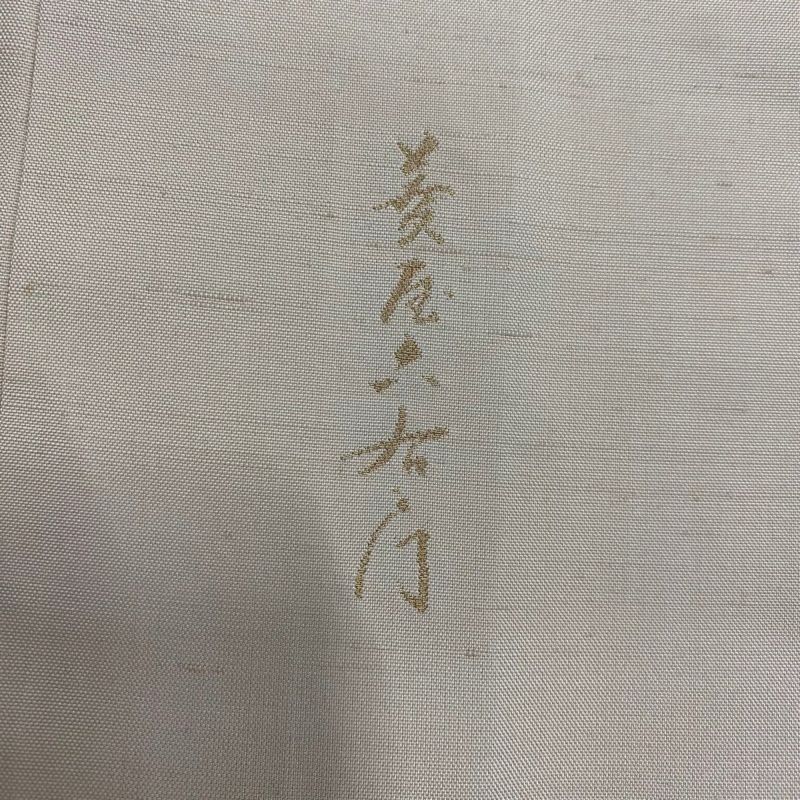 菱屋六右門